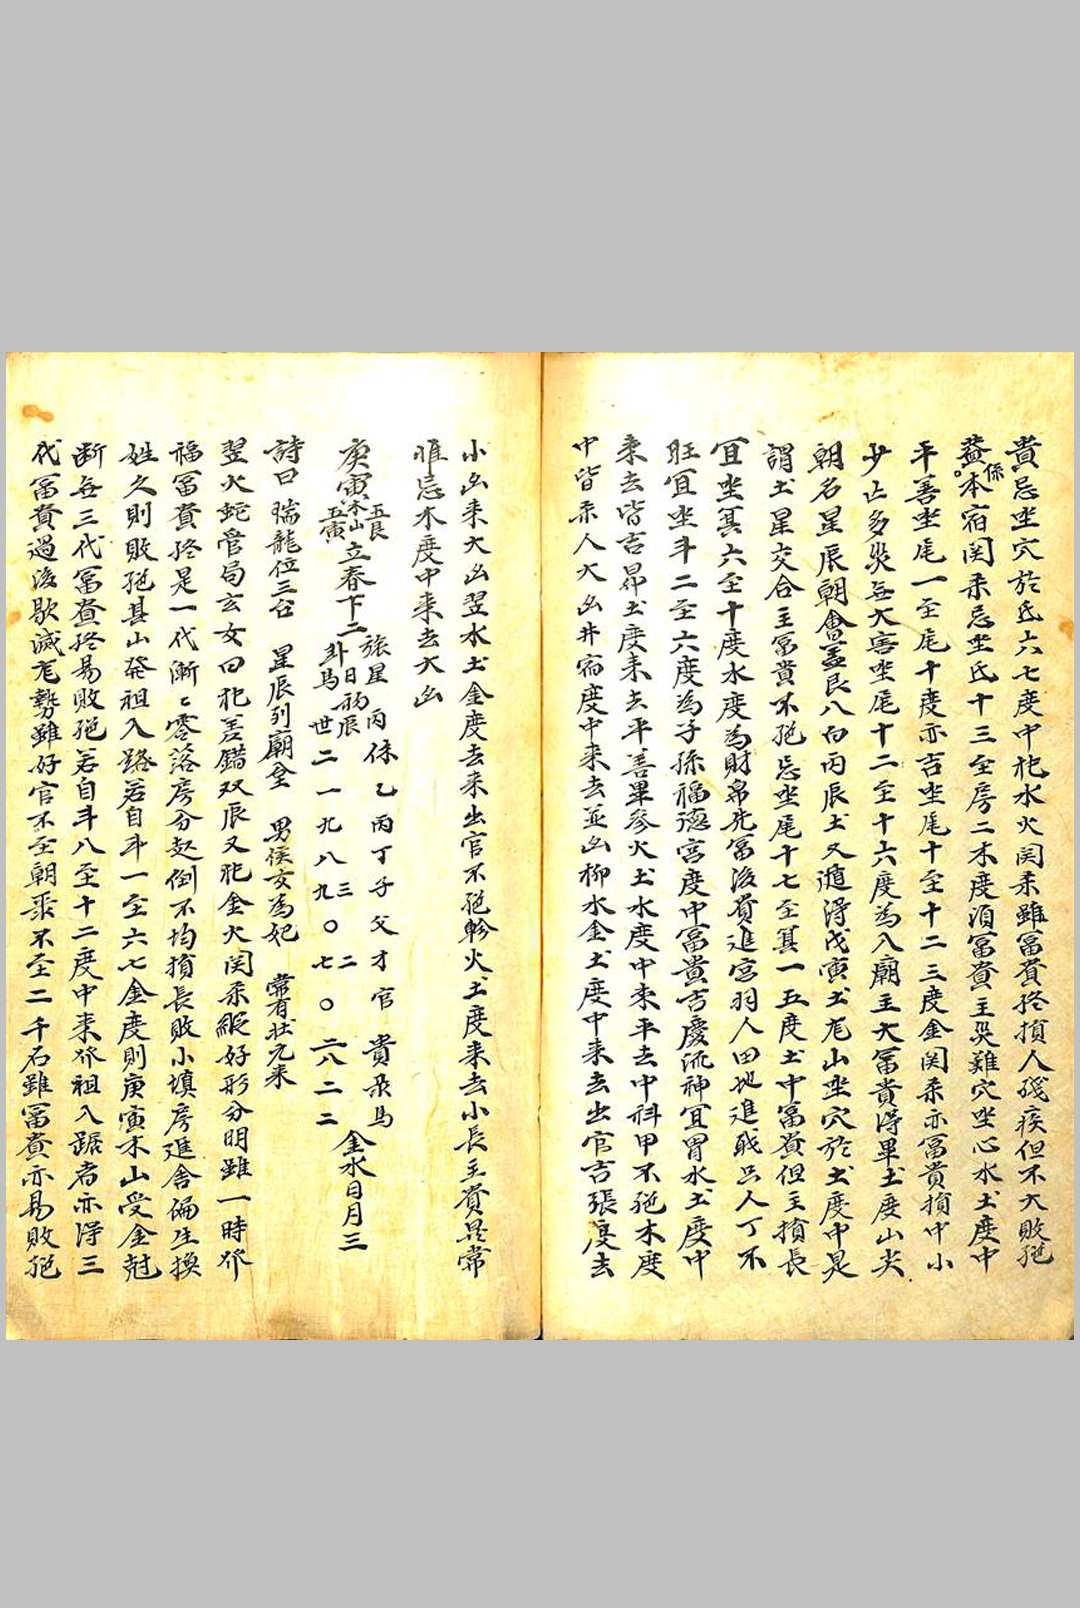 貴忌坐穴於氐六七度中犯水火関柔雖冨貴終損人殘疾但不大敗絕
蓋係本宿関柔忌坐氐十三至房二木度湏冨貴主災難穴坐心水土度中
平善坐尾一至尾十度亦吉坐尾十至十二三度金関柔亦冨貴損中小
少亡多災無大害坐尾十二至十六度為入廟主大冨貴得畢土度山尖
朝名星辰朝會蓋艮八白丙辰土又遁得戊寅土尨山坐穴於土度中是
謂土星交合主冨貴不絕忌坐尾十七至箕一五度土中冨貴但主損長
宜坐箕六至十度水度為財帛先冨後貧進宮羽人田地進戝只人丁不
旺宜坐斗二至六度為子孫福德宮度中冨貴吉慶流神宜胃水土度中
来去皆吉昴土度来去平善畢參火土水度中来平去中科甲不絕木度
中皆柔人大凶井宿度中来去並凶柳水金土度中来去出官吉張度去
小凶来大凶翌水土金度去来出官不絕軫火土度来去小長主貴異常
惟忌木度中来去大凶
庚寅 五艮 木山 五寅 立春下二 旅星丙 係乙丙丁子父才官 貴柔馬
卦日 辰 馬世二一九八九〇七〇六八二二 三二 金水日月三
詩曰 瑞龍位三台 星辰列廟全 男侯女為妃 常有狀元来
翌火蛇管局玄女曰犯差錯双辰又犯金火関柔縦好形分明雖一時發
福冨貴終是一代漸〻零落房分起倒不均損長敗小填房進舍偏生換
姓久則敗絕甚山發祖入路若自斗一至六七金度則庚寅木山受金尅
断無三代冨貴終易敗絕若自斗八至十二度中来發祖入踞者亦得三
代冨貴過後歇滅尨勢雖好官不至朝乘不至二千石雖冨貴亦易敗絕